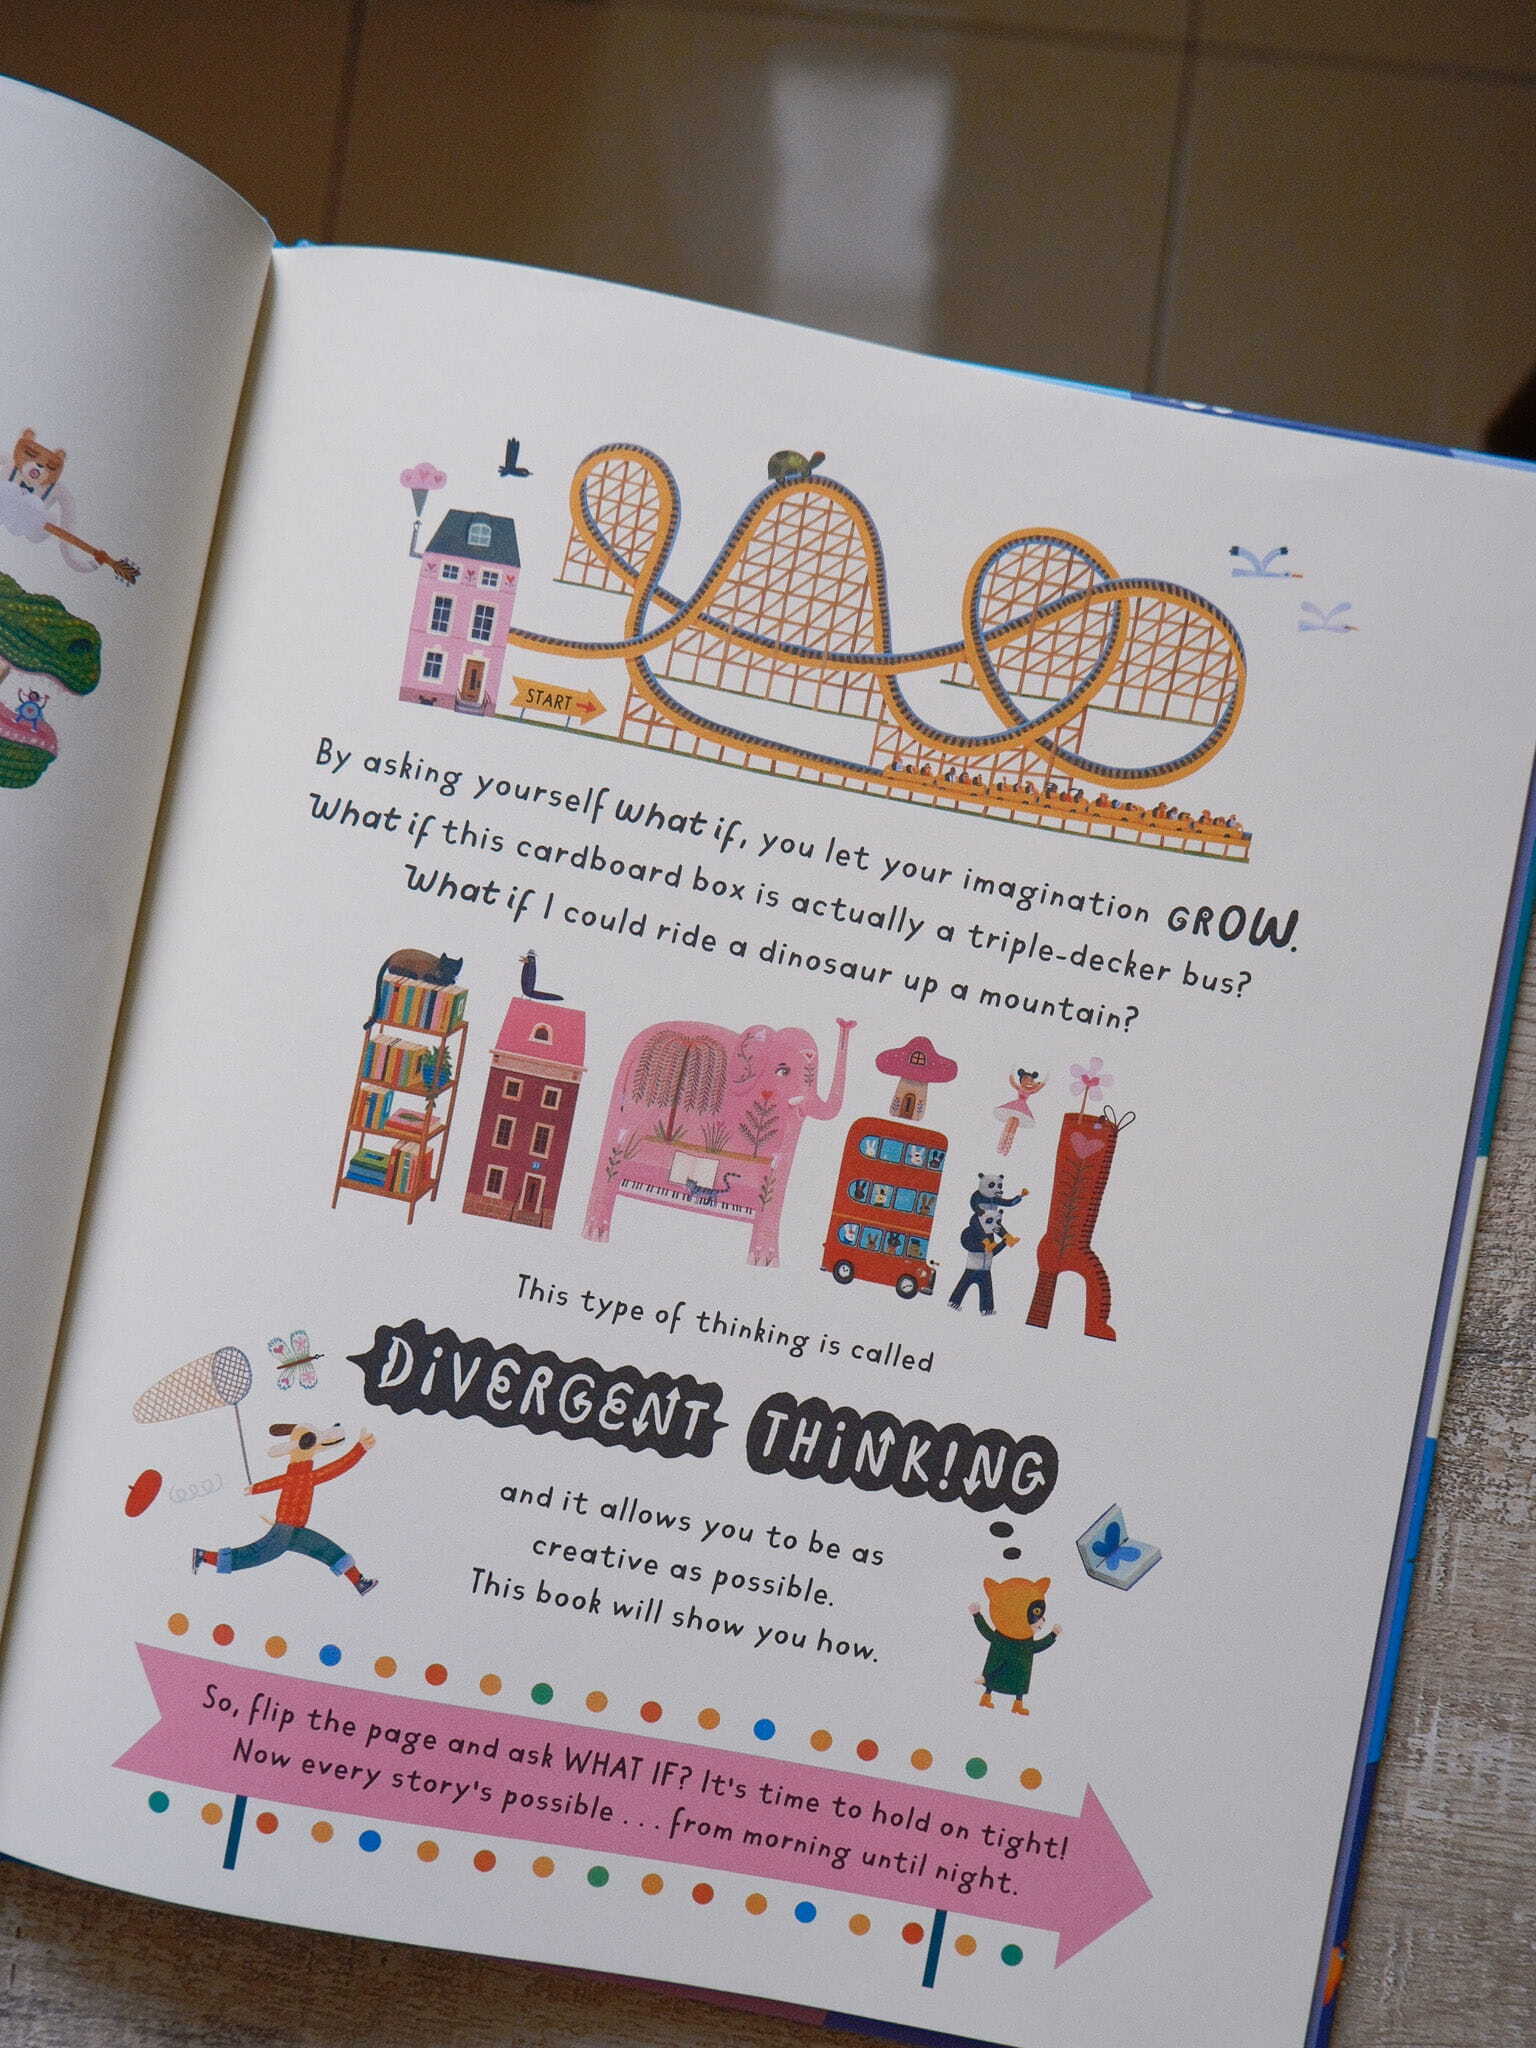 START
By asking yourself what if, you let your imagination GROW.
What if this cardboard box is actually a triple-decker bus?
What if I could ride a dinosaur up a mountain?
This type of thinking is called
DiVERGENT THiNK!NG
and it allows you to be as
creative as possible.
This book will show you how.
So, flip the page and ask WHAT IF? It's time to hold on tight!
Now every story's possible . . . from morning until night.